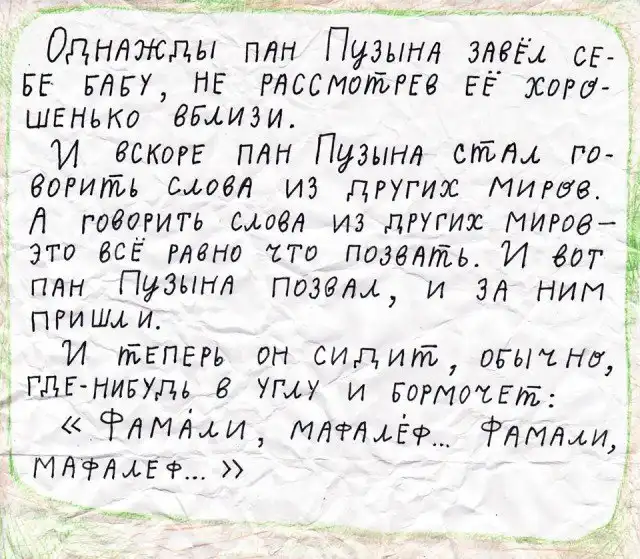 Однажды пан Пузына завёл се-
бе бабу, не рассмотрев её хоро-
шенько вблизи.
И вскоре пан Пузына стал го-
ворить слова из других миров.
А говорить слова из других миров —
это всё равно что позвать. И вот
пан Пузына позвал, и за ним
пришли.
И теперь он сидит, обычно,
где-нибудь в углу и бормочет:
« Фама́ли, мафале́ф... Фамали,
мафалеф... »